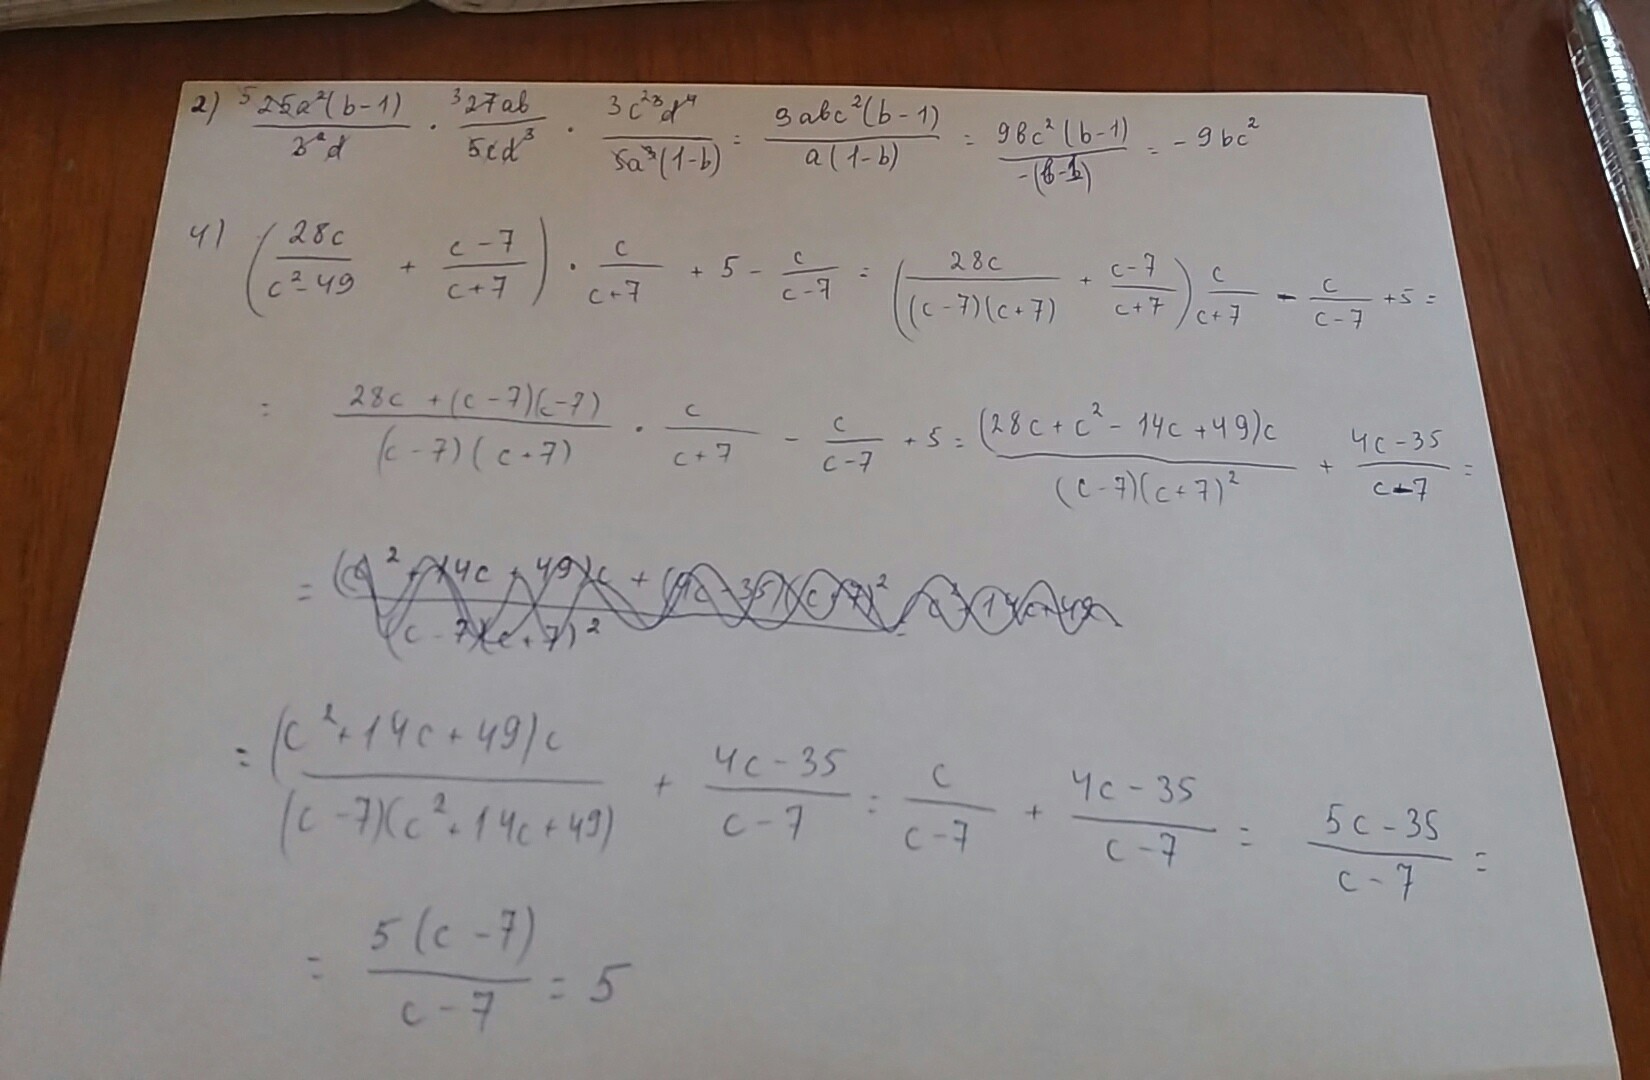 2) ⁵25a²(b-1)/3²d · ³27ab/5cd³ · 3c²³d⁴/5a³(1-b) = 9abc²(b-1)/a(1-b) = 9bc²(b-1)/-(b-1) = -9bc²
4) (28c/c²-49 + c-7/c+7) · c/c+7 + 5 - c/c-7 = (28c/(c-7)(c+7) + c-7/c+7) c/c+7 - c/c-7 + 5 =
= 28c+(c-7)(c-7)/(c-7)(c+7) · c/c+7 - c/c-7 + 5 = (28c+c²-14c+49)c/(c-7)(c+7)² + 4c-35/c-7 =
= (c²+14c+49)c + (4c-35)(c+7)²/(c-7)(c+7)²
= (c²+14c+49)c/(c-7)(c²+14c+49) + 4c-35/c-7 = c/c-7 + 4c-35/c-7 = 5c-35/c-7 =
= 5(c-7)/c-7 = 5